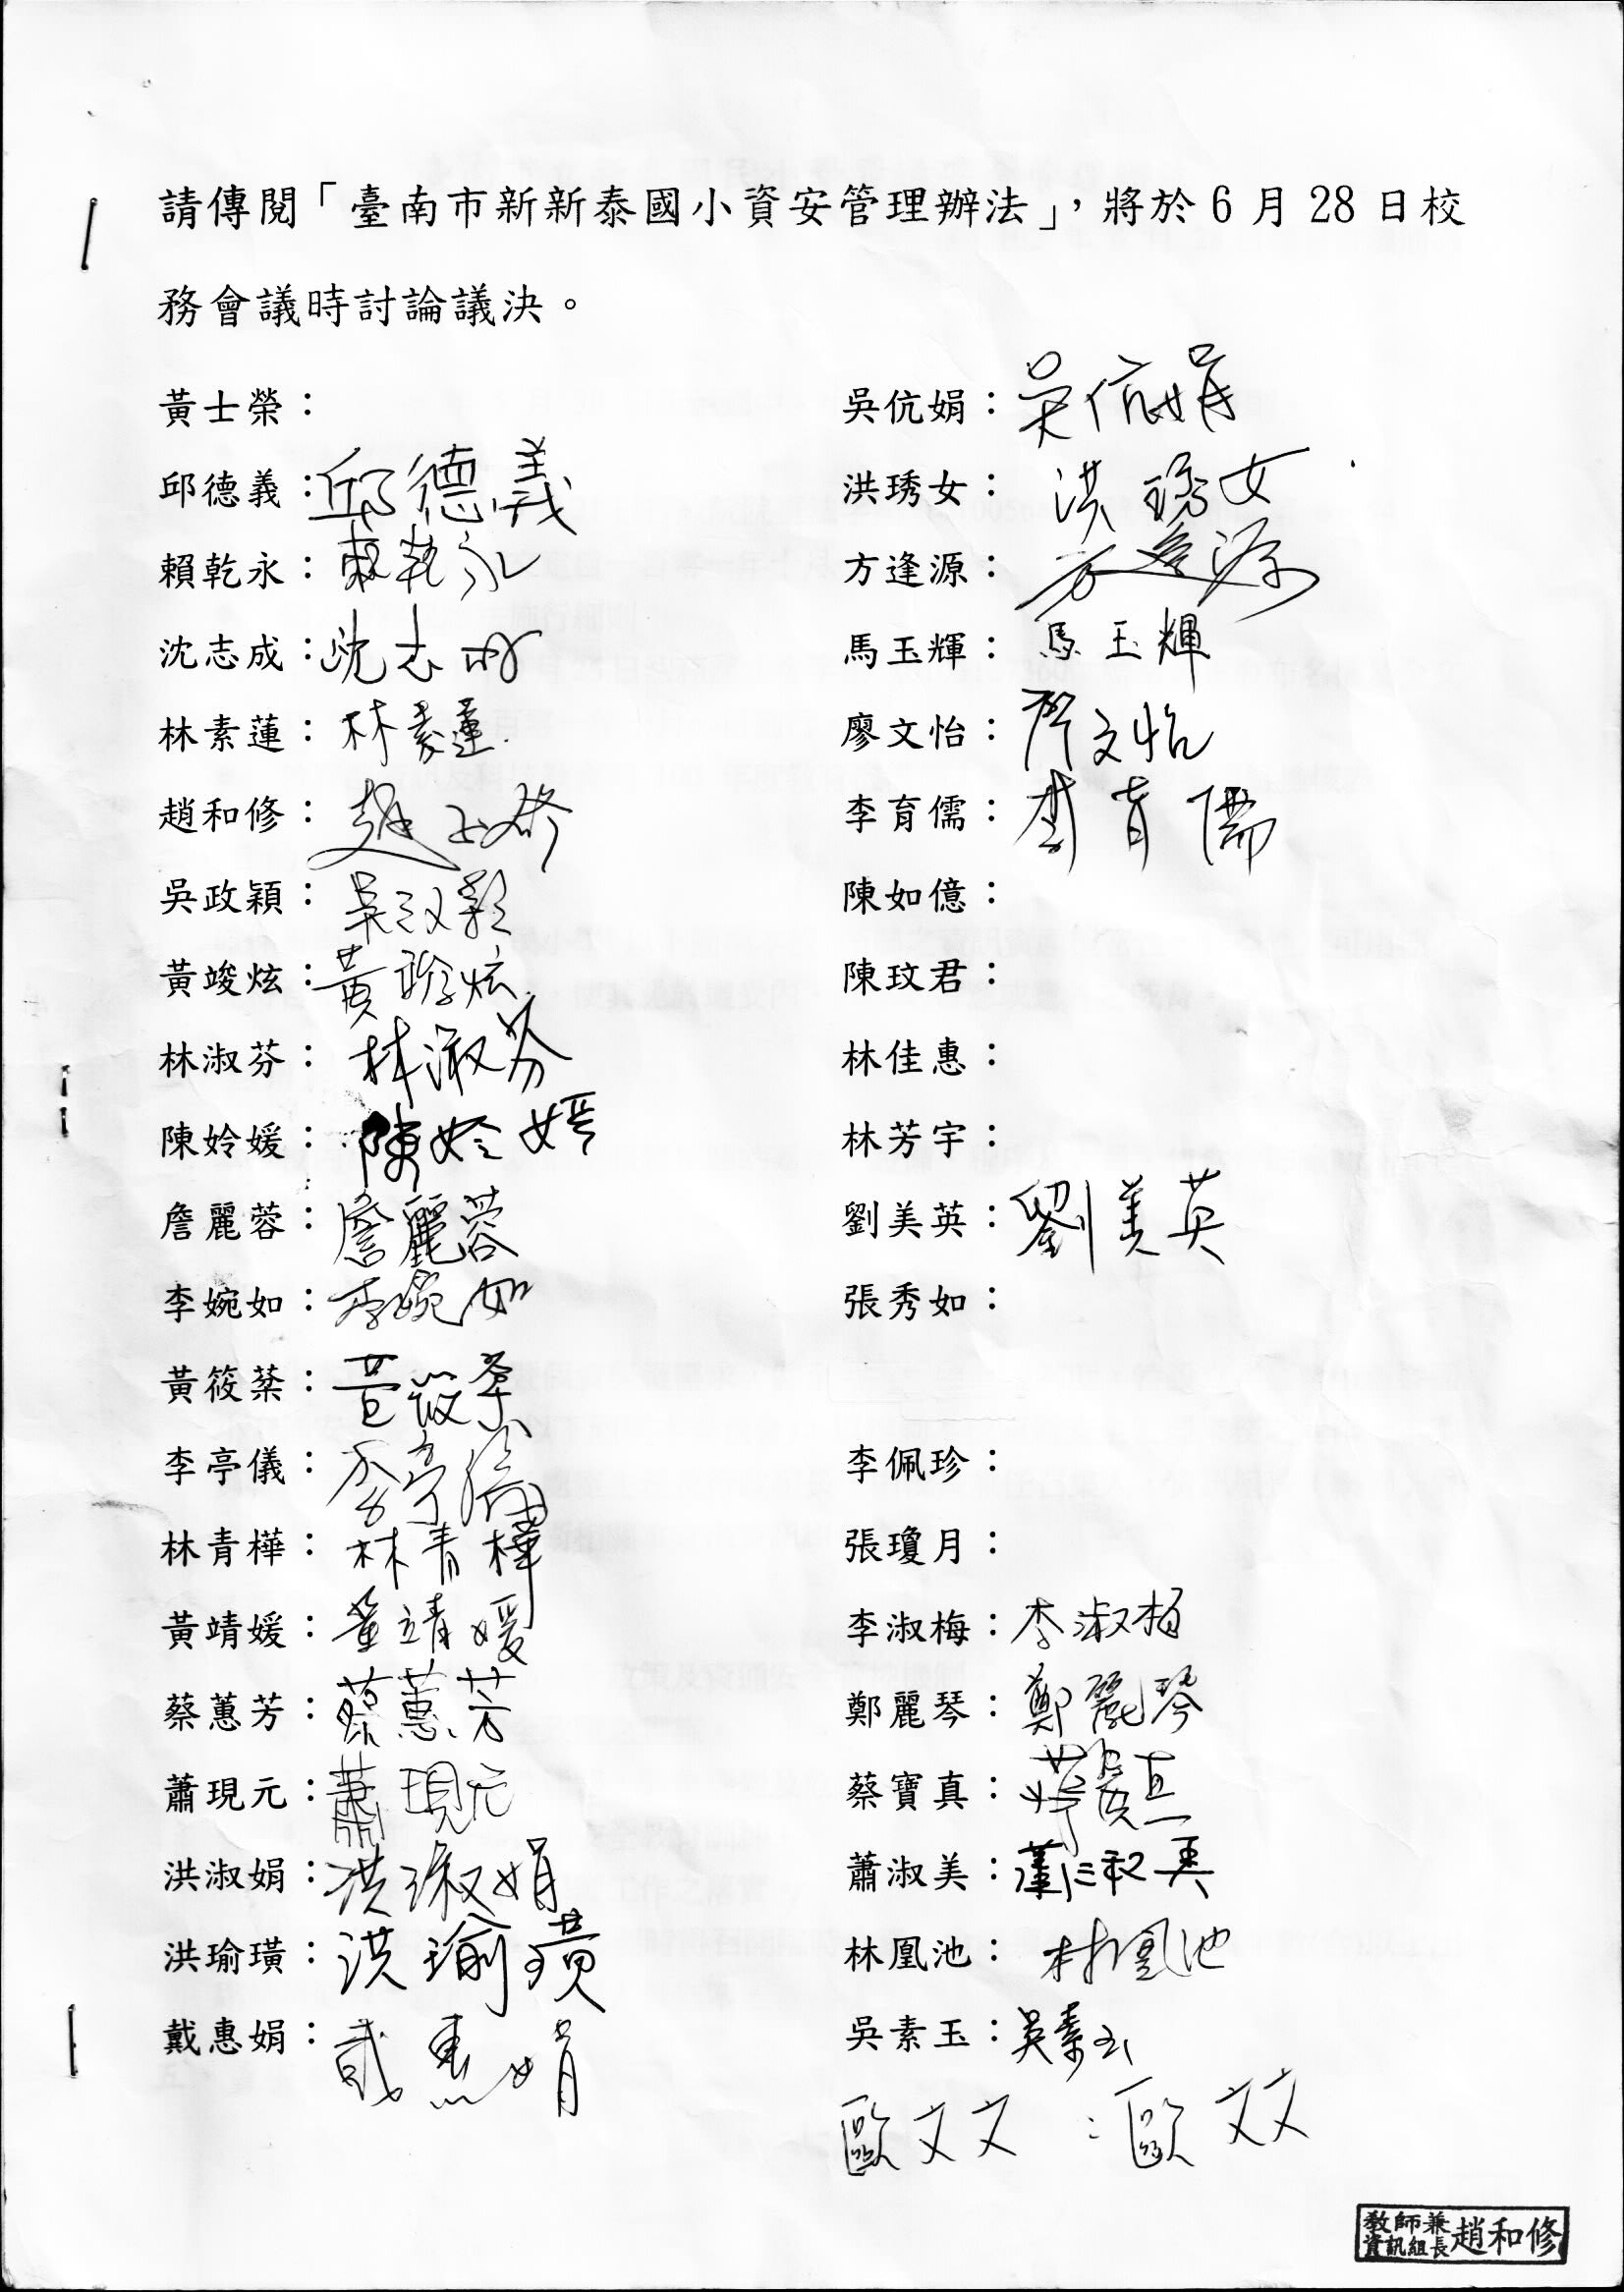 請傳閱「臺南市新新泰國小資安管理辦法」，將於 6 月 28 日校
務會議時討論議決。
黃士榮：
邱德義：邱德義
賴乾永：賴乾永
沈志成：沈志成
林素蓮：林素蓮
趙和修：趙和修
吳政穎：吳政穎
黃竣炫：黃竣炫
林淑芬：林淑芬
陳姈媛：陳姈媛
詹麗蓉：詹麗蓉
李婉如：李婉如
黃筱棻：黃筱棻
李亭儀：李亭儀
林青樺：林青樺
黃靖媛：黃靖媛
蔡蕙芳：蔡蕙芳
蕭現元：蕭現元
洪淑娟：洪淑娟
洪瑜璜：洪瑜璜
戴惠娟：戴惠娟
吳伉娟：吳伉娟
洪琇女：洪琇女
方逢源：方逢源
馬玉輝：馬玉輝
廖文怡：廖文怡
李育儒：李育儒
陳如億：
陳玟君：
林佳惠：
林芳宇：
劉美英：劉美英
張秀如：
李佩珍：
張瓊月：
李淑梅：李淑梅
鄭麗琴：鄭麗琴
蔡寶真：蔡寶真
蕭淑美：蕭淑美
林凰池：林凰池
吳素玉：吳素玉
歐文文：歐文文
教師兼
資訊組長
趙和修